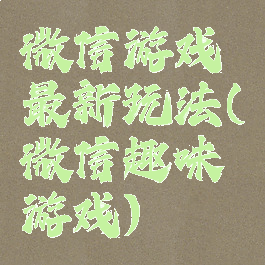 微信游戏
最新玩法(
微信趣味
游戏)